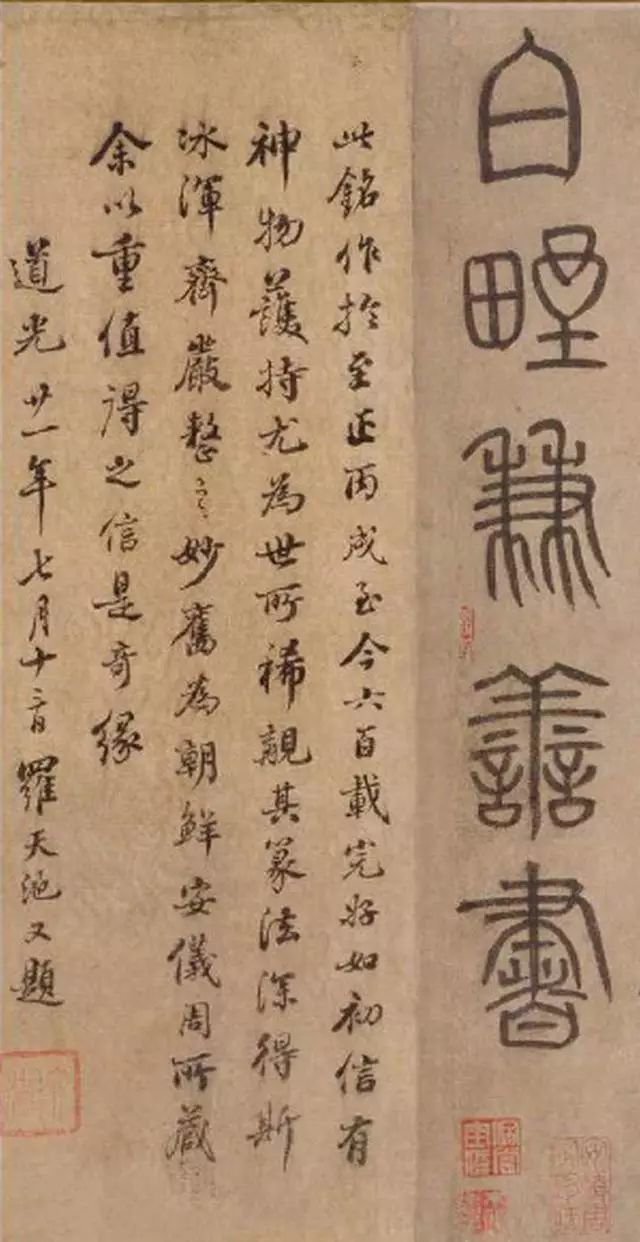 白野兼善書
此銘作於至正丙戌至今六百載完好如初信有
神物護持尤為世所稀覯其篆法深得斯
冰渾齊嚴整之妙舊為朝鮮安儀周所藏
余以重值得之信是奇緣
道光廿一年七月十二日羅天池又題